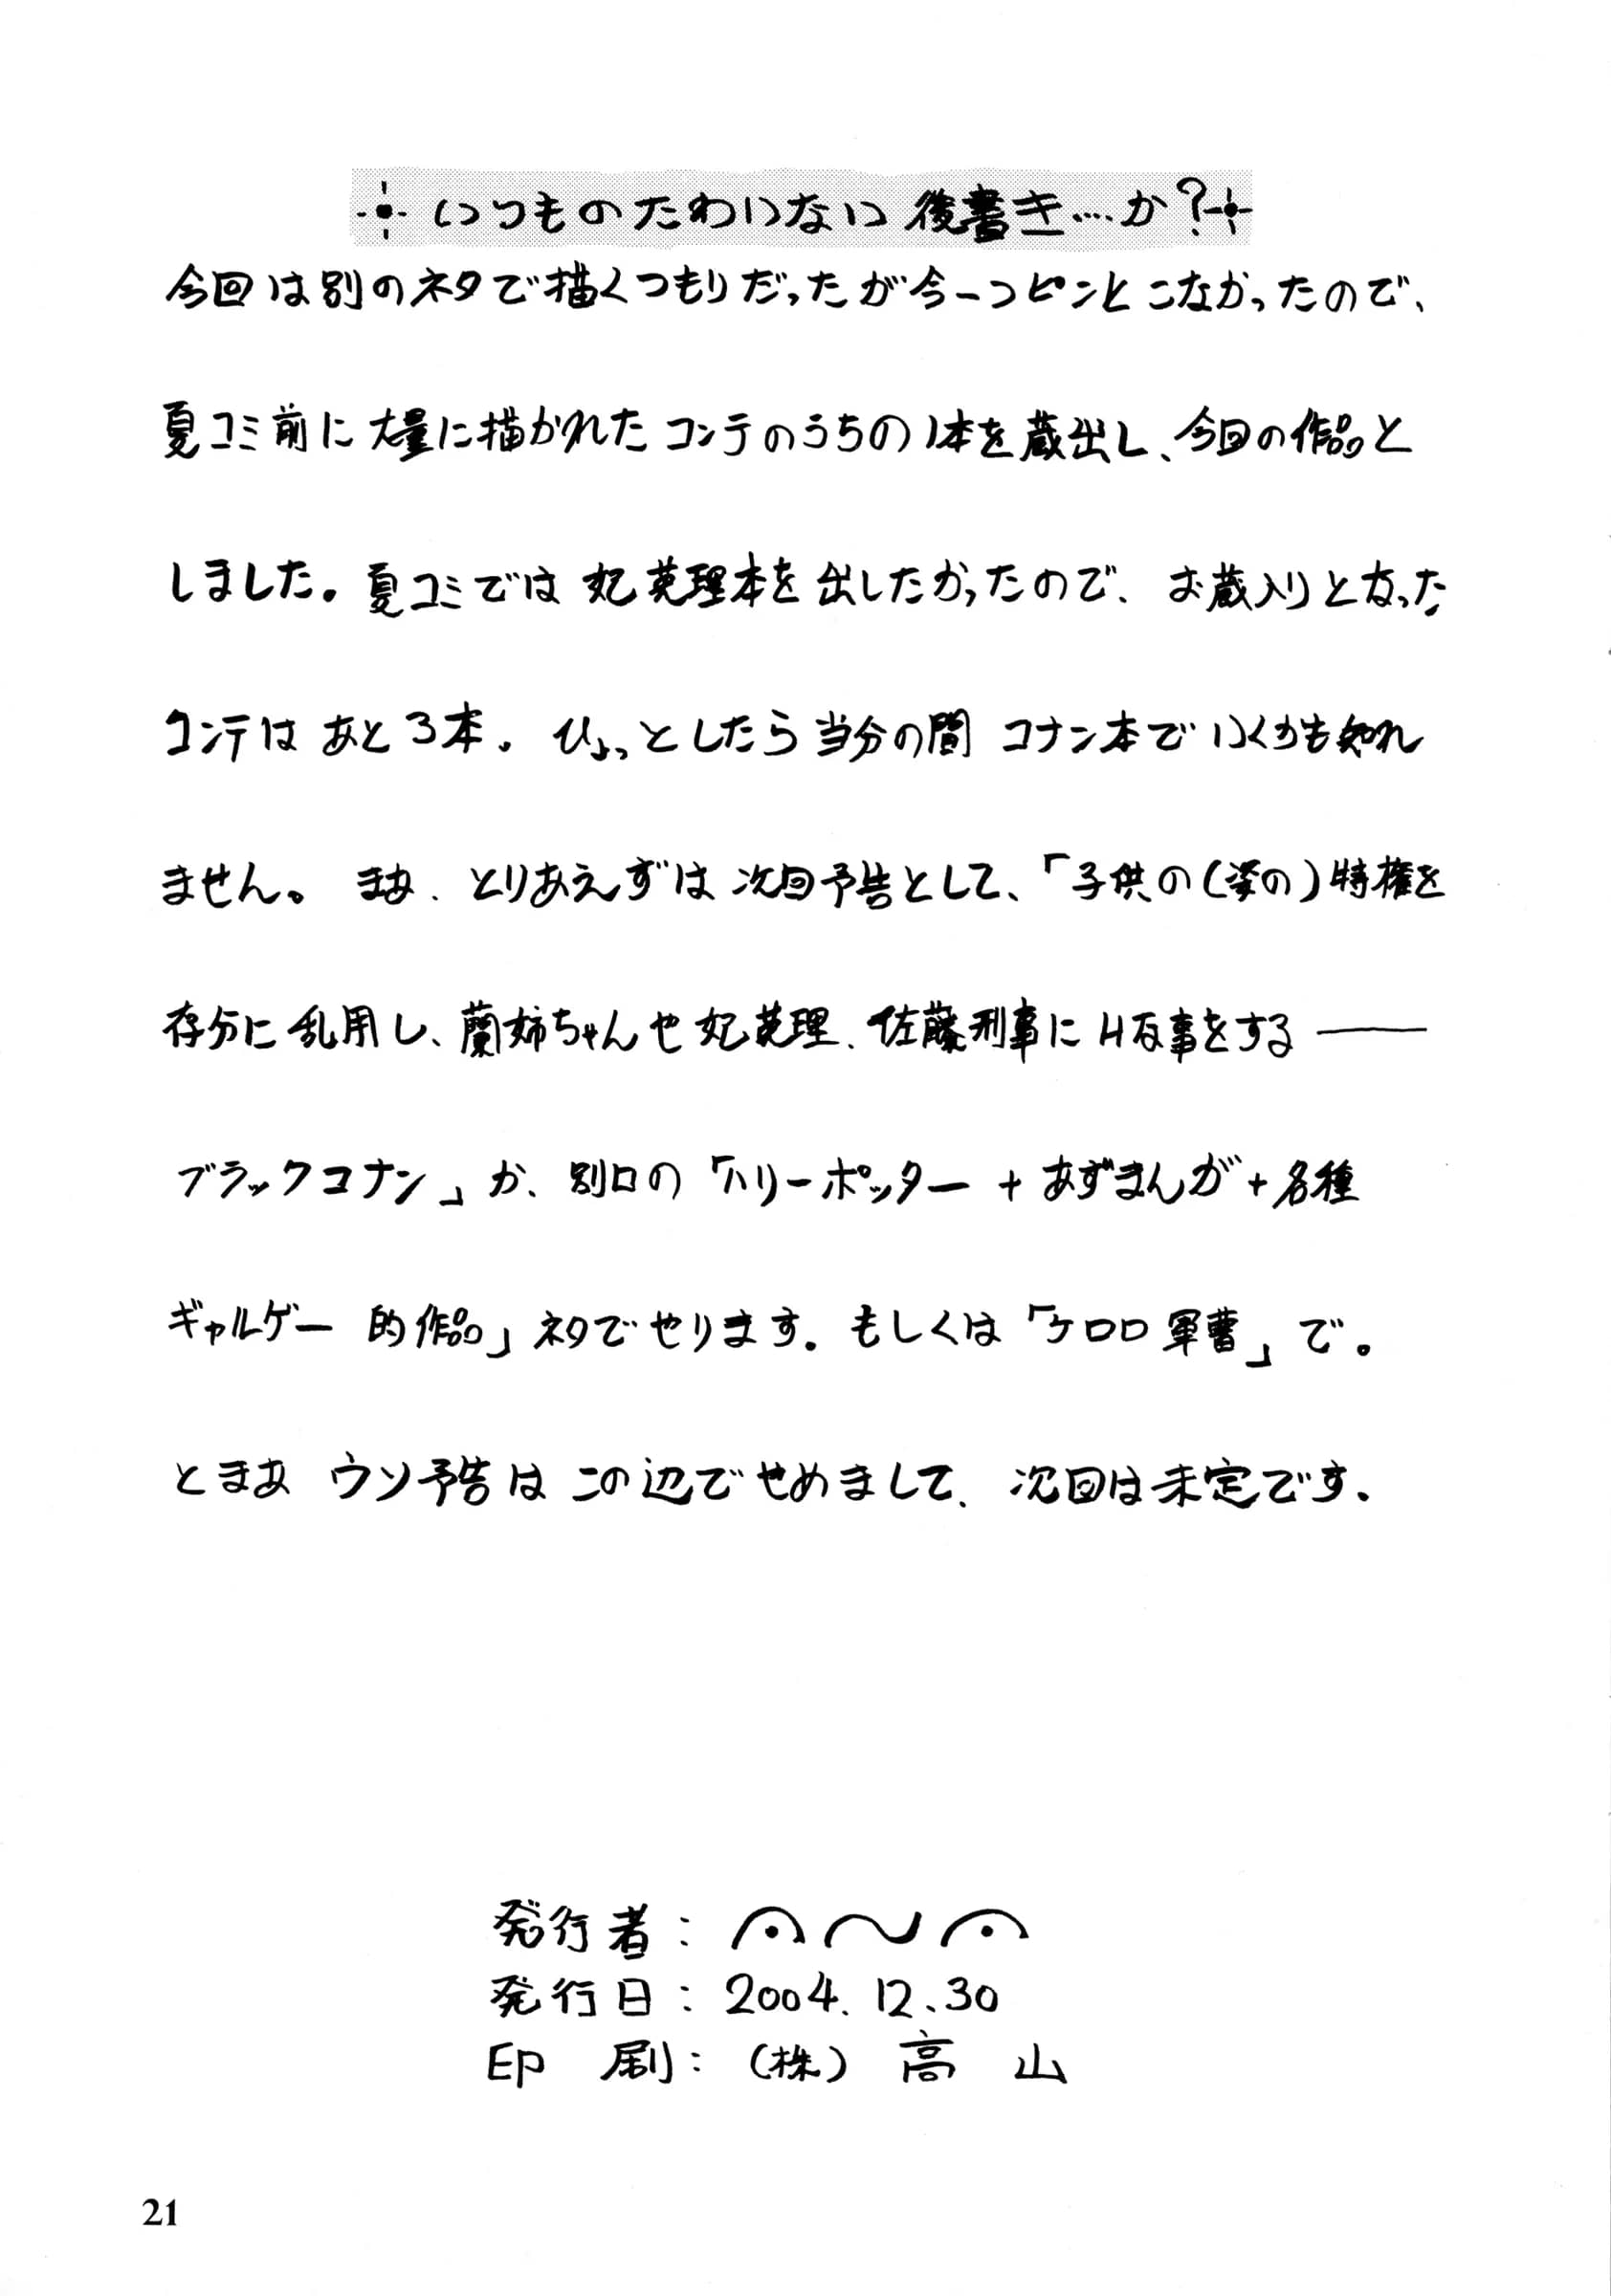 いつものたわいない後書き....か?
今回は別のネタで描くつもりだったが今一つピンとこなかったので、
夏コミ前に大量に描かれたコンテのうちの1本を蔵出し、今回の作品と
しました。夏コミでは妃英理本を出したかったので、お蔵入りとなった
コンテはあと3本。ひょっとしたら当分の間コナン本でいくかも知れ
ません。まあ、とりあえずは次回予告として、「子供の(姿の)特権を
存分に乱用し、蘭姉ちゃんや妃英理、佐藤刑事にHな事をする――
ブラックコナン」か、別口の「ハリーポッター+あずまんが+各種
ギャルゲー的作品」ネタでやります。もしくは「ケロロ軍曹」で。
とまあ ウソ予告はこの辺でせめまして、次回は未定です。
発行者:
発行日:2004.12.30
印刷:(株)高山
21